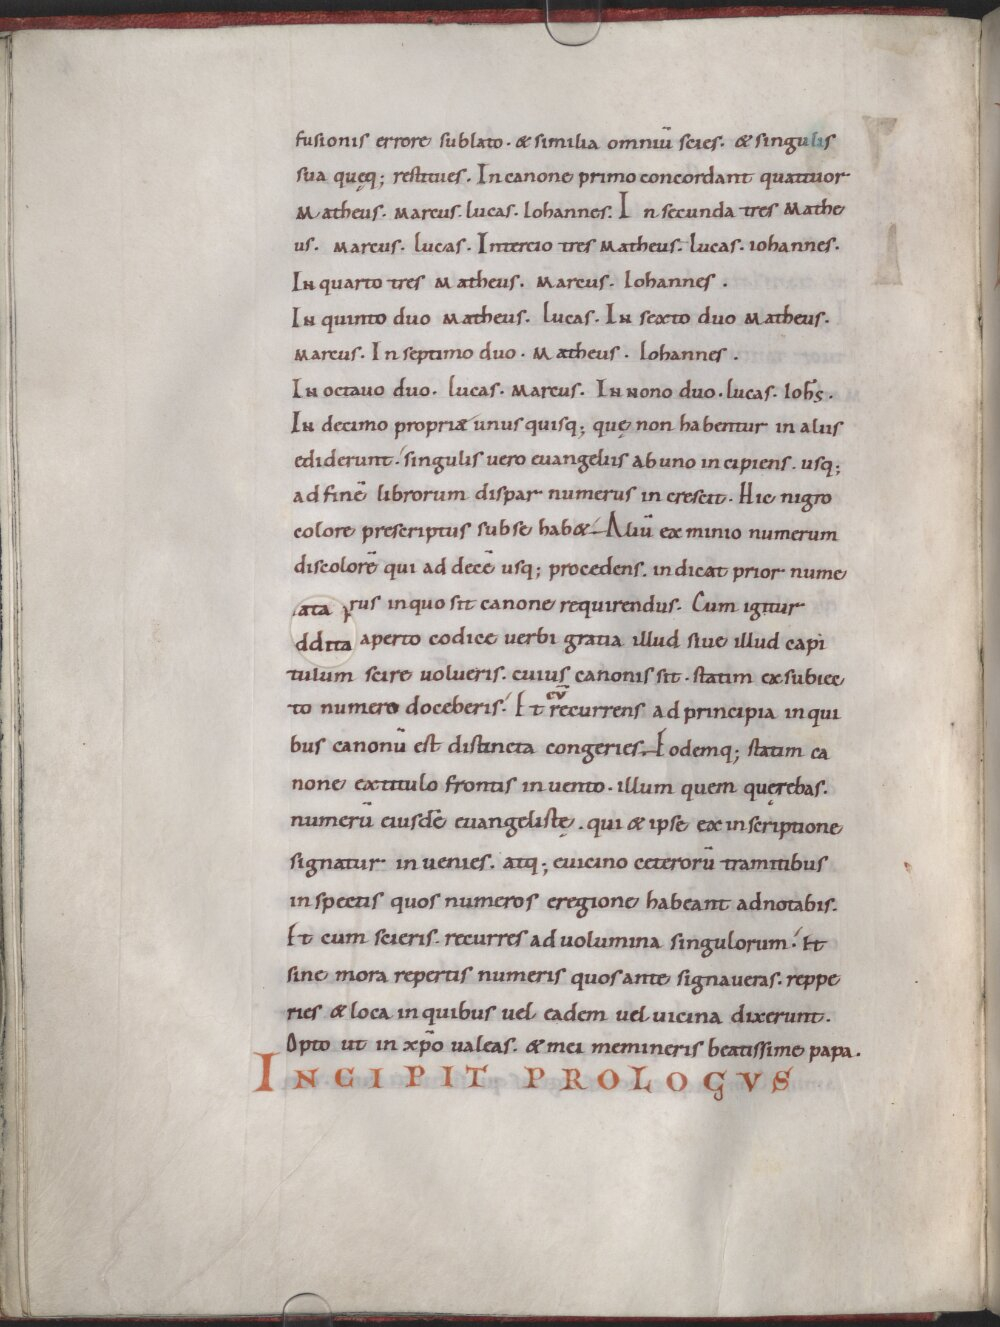 fusionis errore sublato. & similia omniū scies. & singulis
sua quęq; restitues. In canone primo concordant quattuor
Matheus. Marcus. lucas. Iohannes. In secunda tres Mathe
us. Marcus. lucas. In tercio tres Matheus. lucas. iohannes.
In quarto tres Matheus. Marcus. Iohannes.
In quinto duo Matheus. lucas. In sexto duo Matheus.
Marcus. In septimo duo. Matheus. Iohannes.
In octauo duo. lucas. Marcus. In nono duo. lucas. Ioh̄s.
In decimo propriæ unus quisq; quę non habentur in aliis
ediderunt. singulis uero euangeliis ab uno incipiens. usq;
ad finē librorum dispar numerus increscit. Hic nigro
colore prescriptus sub se hab&. Aliū ex minio numerum
discolorē qui ad decē usq; procedens. indicat prior nume
rus in quo sit canone requirendus. Cum igitur
ata
ddita
aperto codice uerbi gratia illud siue illud capi
tulum scire uolueris. cuius canonis sit. statim ex subiec
to numero doceberis. Et recurrens ad principia in qui
bus canonū est distincta congeries. Eodemq; statim ca
none ex titulo frontis inuento. illum quem quęrebas.
numerū eiusdē euangelistę. qui & ipse ex inscriptione
signatur inuenies. atq; euicino ceterorū tramitibus
inspectis quos numeros eregione habeant adnotabis.
Et cum scieris. recurres ad uolumina singulorum. Et
sine mora repertis numeris quos ante signaueras. reppe
ries & loca in quibus uel eadem uel uicina dixerunt.
Opto ut in xp̄o ualeas. & mei memineris beatissime papa.
INCIPIT PROLOGVS